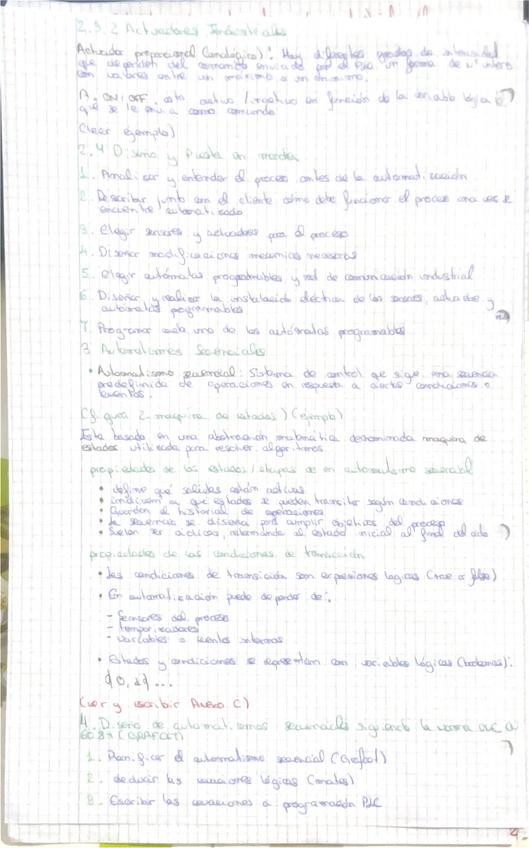 2.3.2 Actuadores Industriales
Actuador proporcional (analógico): Hay diferentes grados de intensidad
que dependen del comando enviado por el PLC en forma de nº
con valores entre un máximo a un mínimo.
A. ON/OFF: esta activo / inactivo en función de la variable lógica
que se le envia como comando
(leer ejemplo)
2.4 Diseño y Puesta en marcha
1. Analizar y entender el proceso antes de la automatización
2. Describir junto con el cliente cómo debe funcionar el proceso una vez se
encuentre automatizado
3. Elegir sensores y actuadores para el proceso
4. Diseñar modificaciones mecánicas necesarias
5. elegir autómatas programables y red de comunicación industrial
6. Diseñar y realizar la instalación eléctrica de los sensores, actuadores y
automatas programables
7. Programar cada uno de los autómatas programables
3 Automatismos Secuenciales
• Automatismo secuencial: Sistema de control que sigue una secuencia
predefinida de operaciones en respuesta a ciertas condiciones o
eventos.
(figura 2. maquina de estados) (ejemplo)
Esta basado en una abstracción matemática denominada maquina de
estados utilizada para resolver algoritmos
propiedades de los estados / etapas de en automatismo secuencial
• define qué salidas están activas
• indican a que estados se pueden transitar según condiciones
• Guardan el historial de operaciones
• la secuencia se diseña para cumplir objetivos del proceso
• Suelen ser cíclicas, retornando al estado inicial al final del ciclo
propiedades de las condiciones de transición
• Las condiciones de transición son expresiones logicas (true or false)
• En automatización puede depender de:
- Sensores del proceso
- temporizadores
- variables o eventos internos
• Estados y condiciones se representan con variables lógicas (booleanas):
{0,1}...
(ver y escribir Anexo C)
4. Diseño de automatismos secuenciales siguiendo la norma
(GRAFCET)
1. Planificar el automatismo secuencial (Grafcet)
2. deducir las ecuaciones lógicas
3. Escribir las ecuaciones a programación PLC
4.